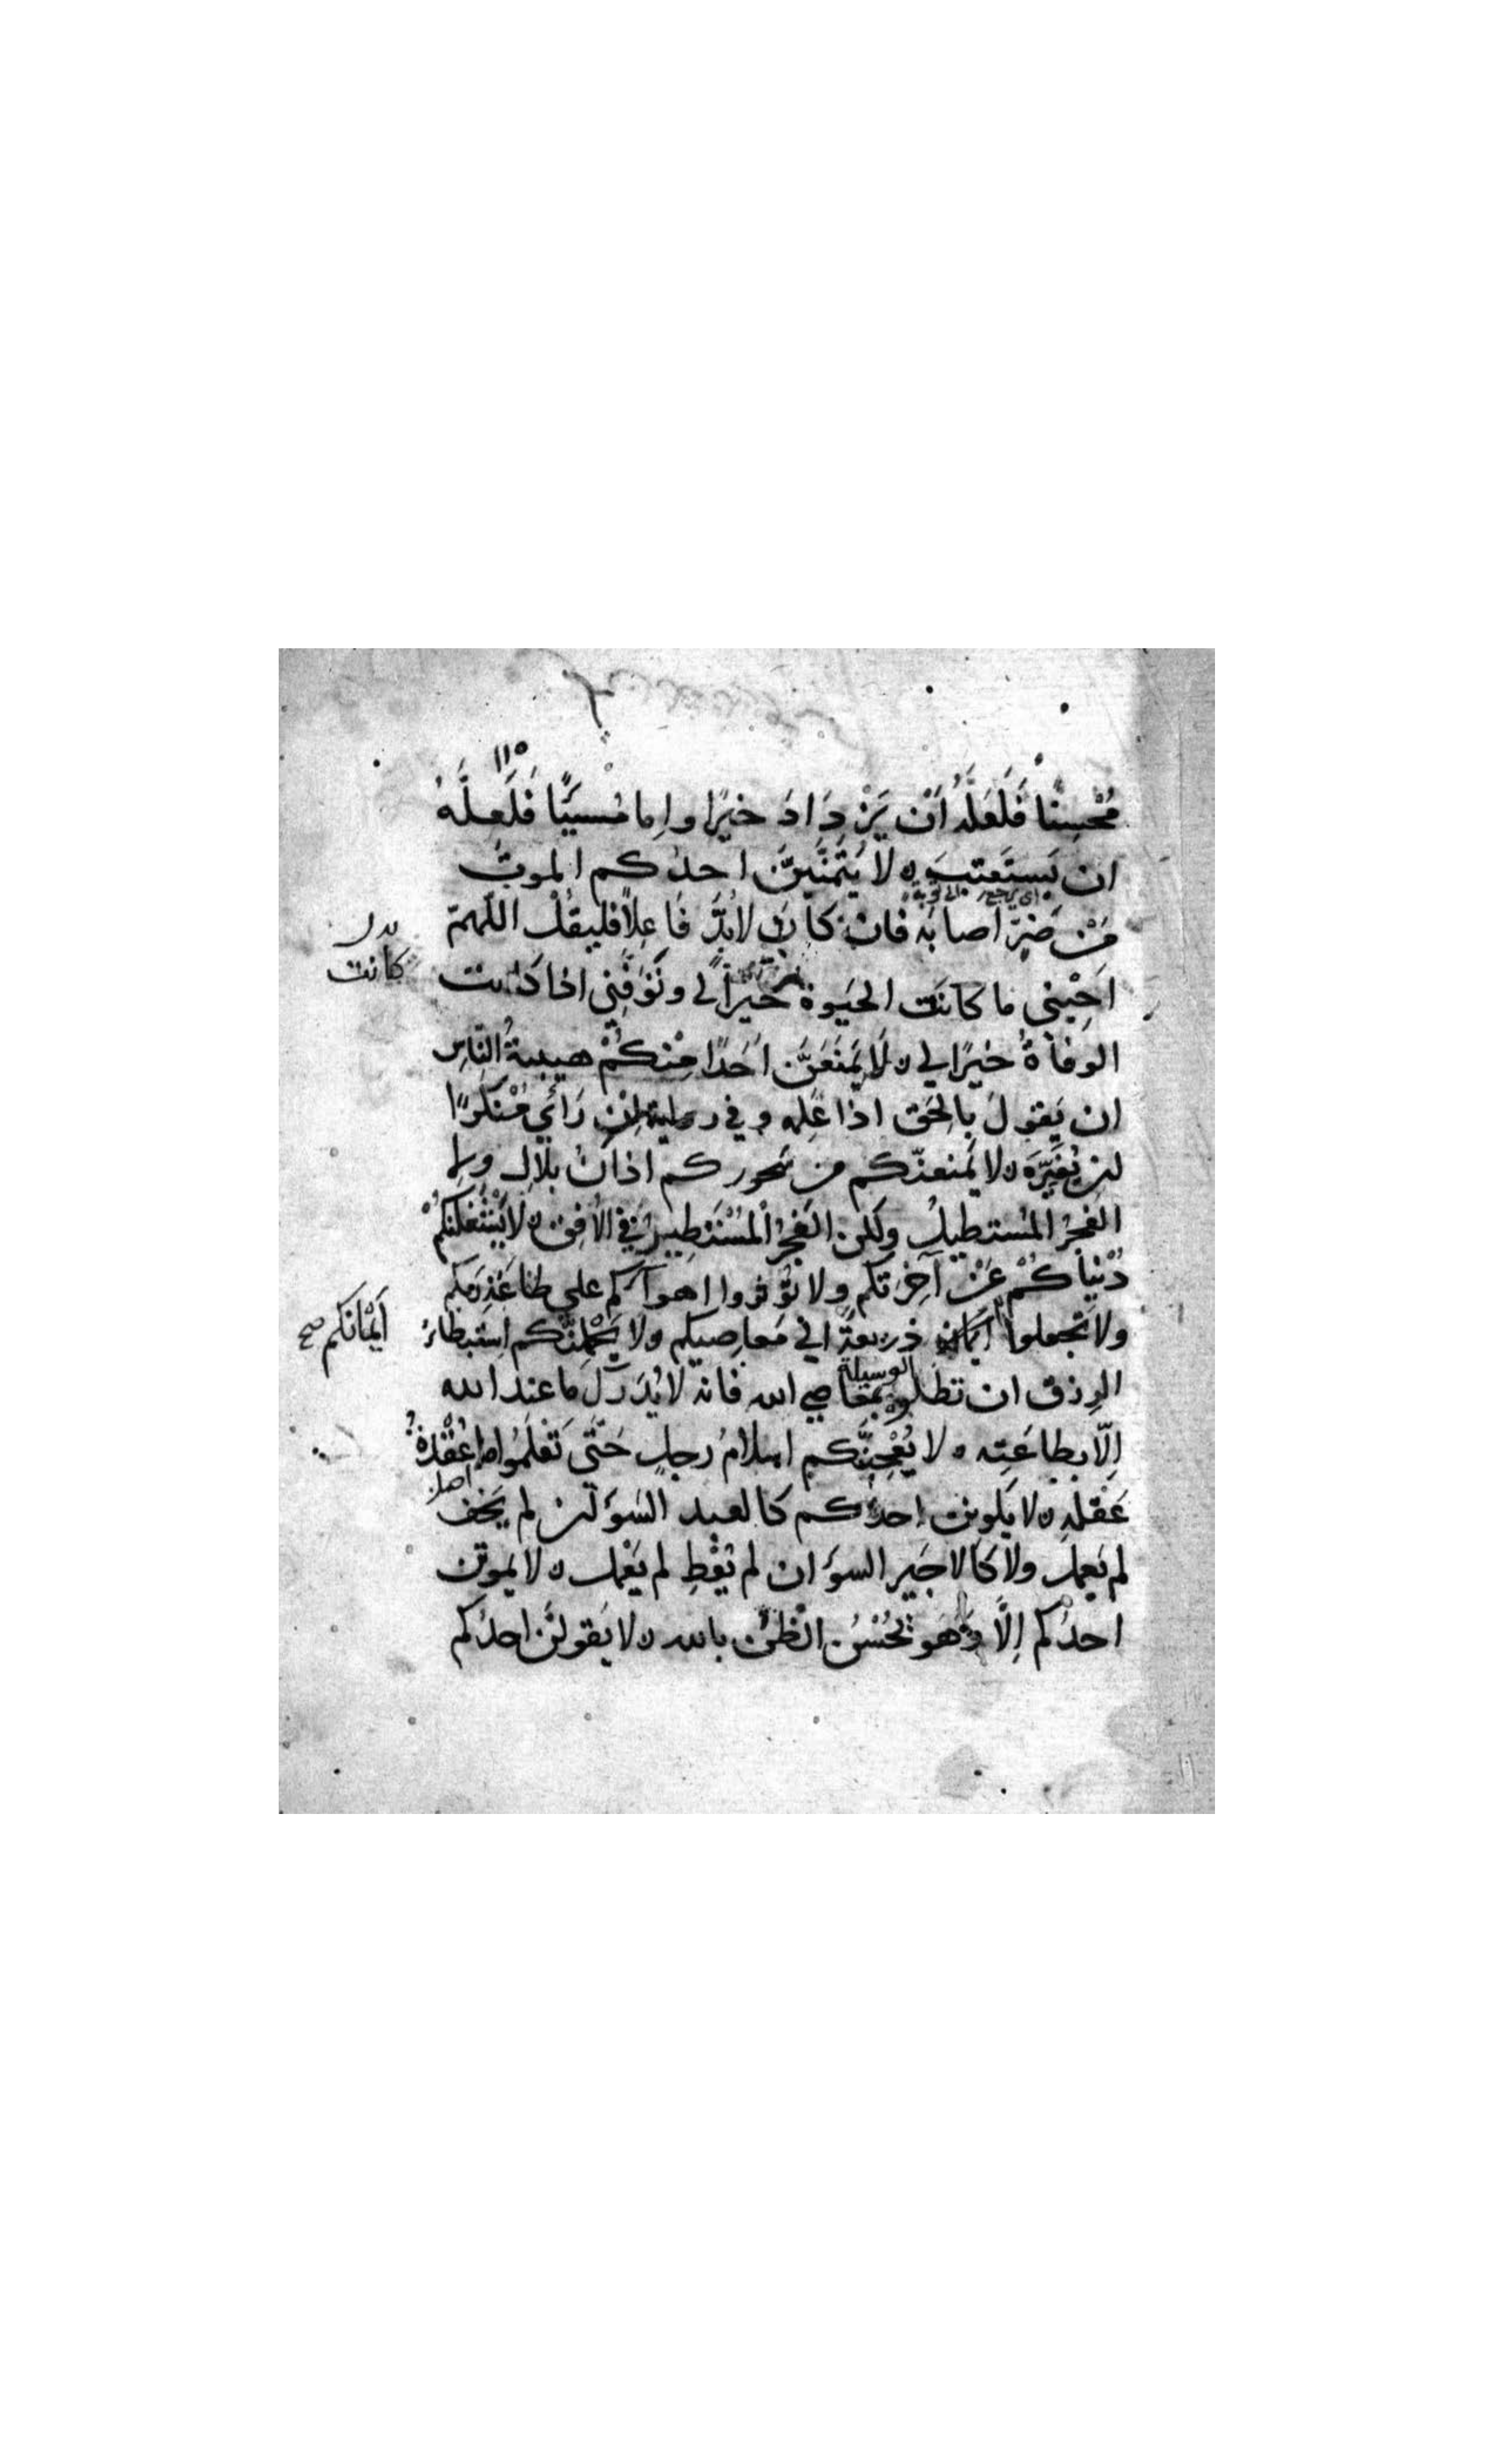 ١١٥
مُحْسِنًا فَلَعَلَّهُ اَنْ يَزْدَادَ خيرًا وإما مُسيئًا فَلَعلَّهُ
ان يَستَعتبَ ٥ لا يَتمنَّيَنَّ احدُكم الموتَ
اي يرجع الى توبة
مِنْ ضُرٍّ اصابَه فان كان لابُدَّ فَاعِلاً فليقُلْ اللّهمّ
بدل
كانت
اَحْيِني ما كانَت الحيَوة خَيْراً لي وتَوَفَّني اذا كانت
الوفاةُ خيرًا لي ٥ لَا يَمنَعَنَّ اَحَدًا مِنْكُمْ هيبةُ النَّاسِ
ان يَقولَ بِالحَق اذا عَلِمه وفي رواية اِنْ رَأَي مُنْكرًا
ان يُغَيِّرَه ٥ لا يَمنعنّكم من سَحُوركم اذانُ بلالٍ ولا
الفجرُ المُستطيلُ ولكن الفَجْرُ المُسْتَطِيرُ في الاُفِق ٥ لَا يَشْغَلنكُمْ
دُنْيَاكُمْ عَنْ آخِرَتكم ولا تُؤثروا اهوآكم علي طاعَةِ رَبكم
ولا تجعلوا ايمان ذريعةً الي مَعاصِيكم ولا يَحْمِلنَّكم اِستبطاءُ
اَيْمَانَكم صح
الوسيلة
الرِزق ان تطلبوه بمَعَاصِي الله فانه لا يُدرَكُ ما عند الله
اِلّا بطاعَتِه ٥ لا يُعْجِبَنَّكم اسلامُ رجلٍ حَتّى تَعْلَمُوا ما عُقْدَةُ
عَقلهِ ٥ لا يَكونن احدُكم كالعبد السَّوءِ ان لم يَخَف
لم يَعمل ولا كالاجَير السوءِ ان لم يُعْطِ لم يَعْمل ٥ لا يَموتن
احدُكم اِلَّا وَهُو يُحْسِنُ الظَّنَّ بالله ٥ لا يَقولَنَّ احدُكم